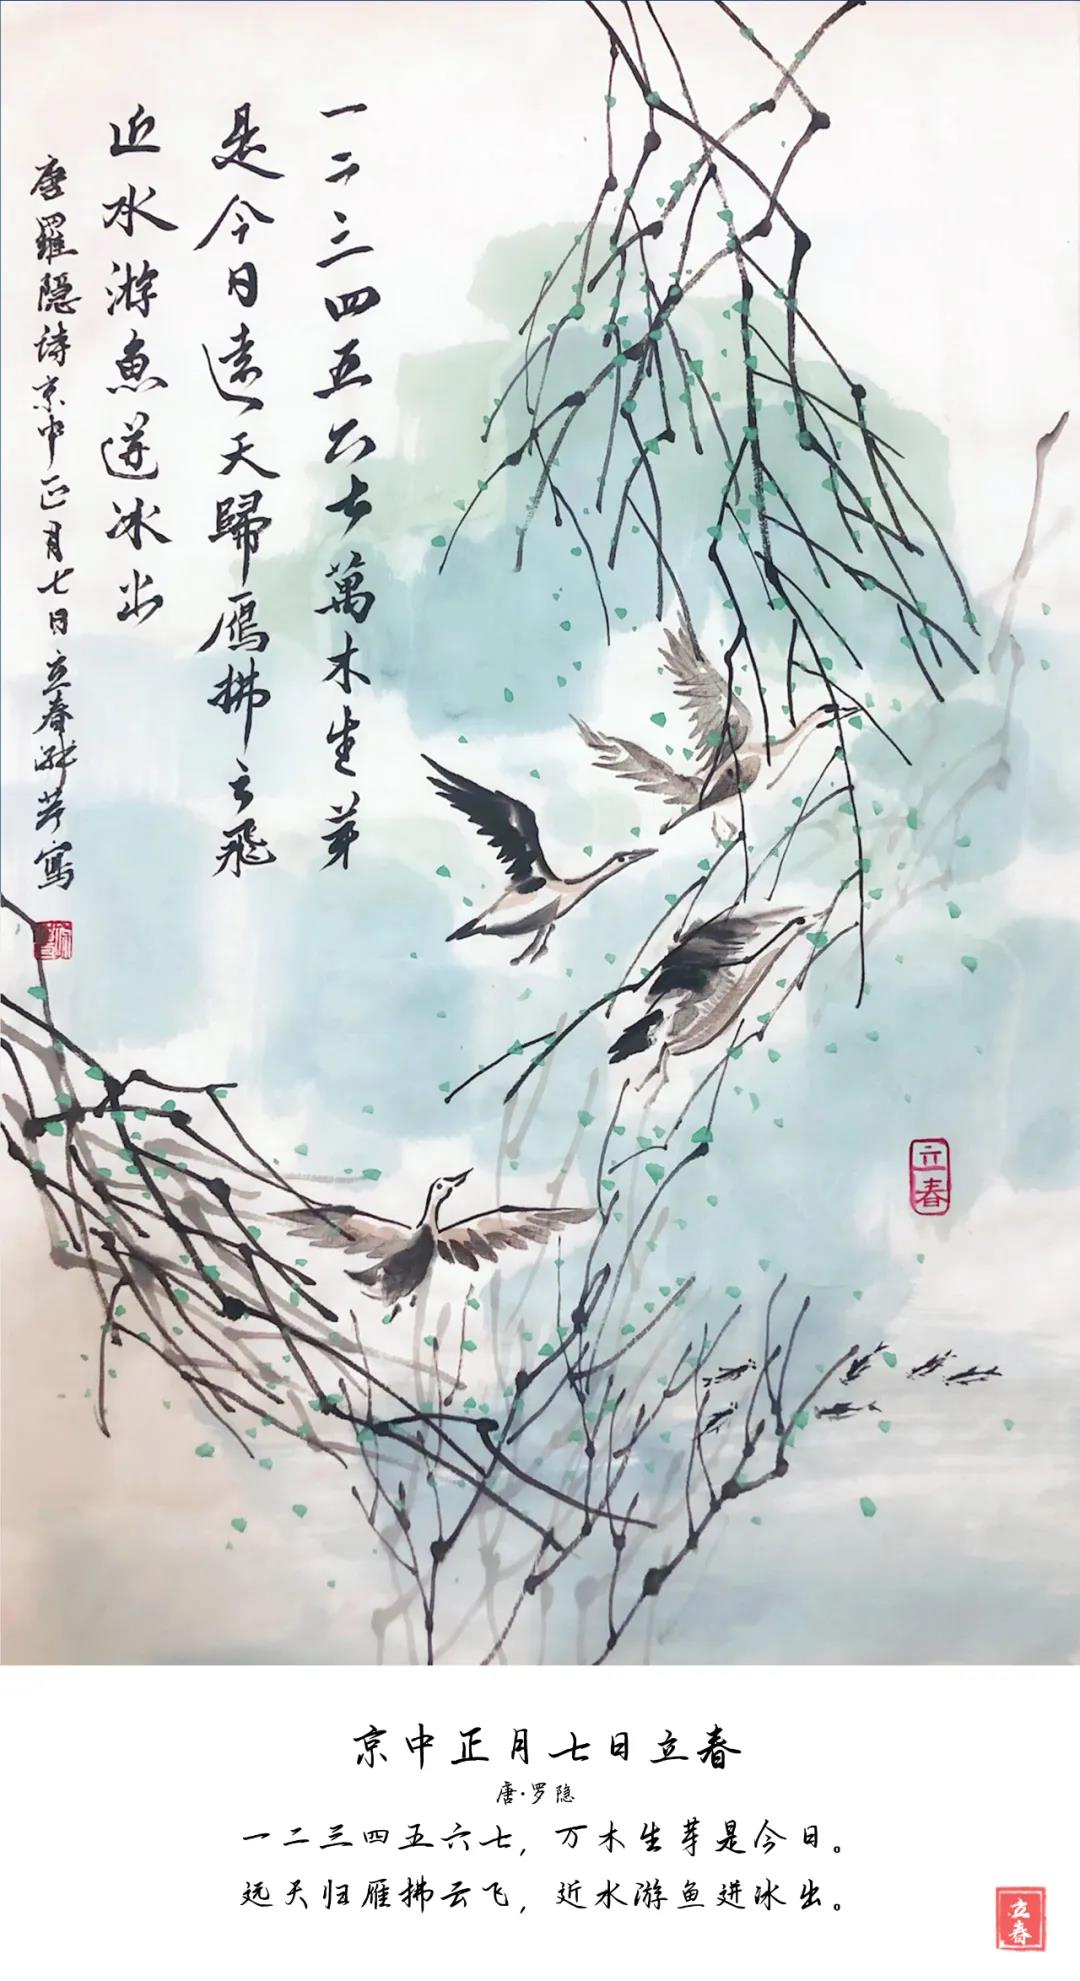 一二三四五六七萬木生芽
是今日遠天歸雁拂云飛
近水游魚迸冰出
唐羅隐诗京中正月七日立春芹寫
立春
京中正月七日立春
唐·罗隐
一二三四五六七，万木生芽是今日。
远天归雁拂云飞，近水游鱼进冰出。
立春